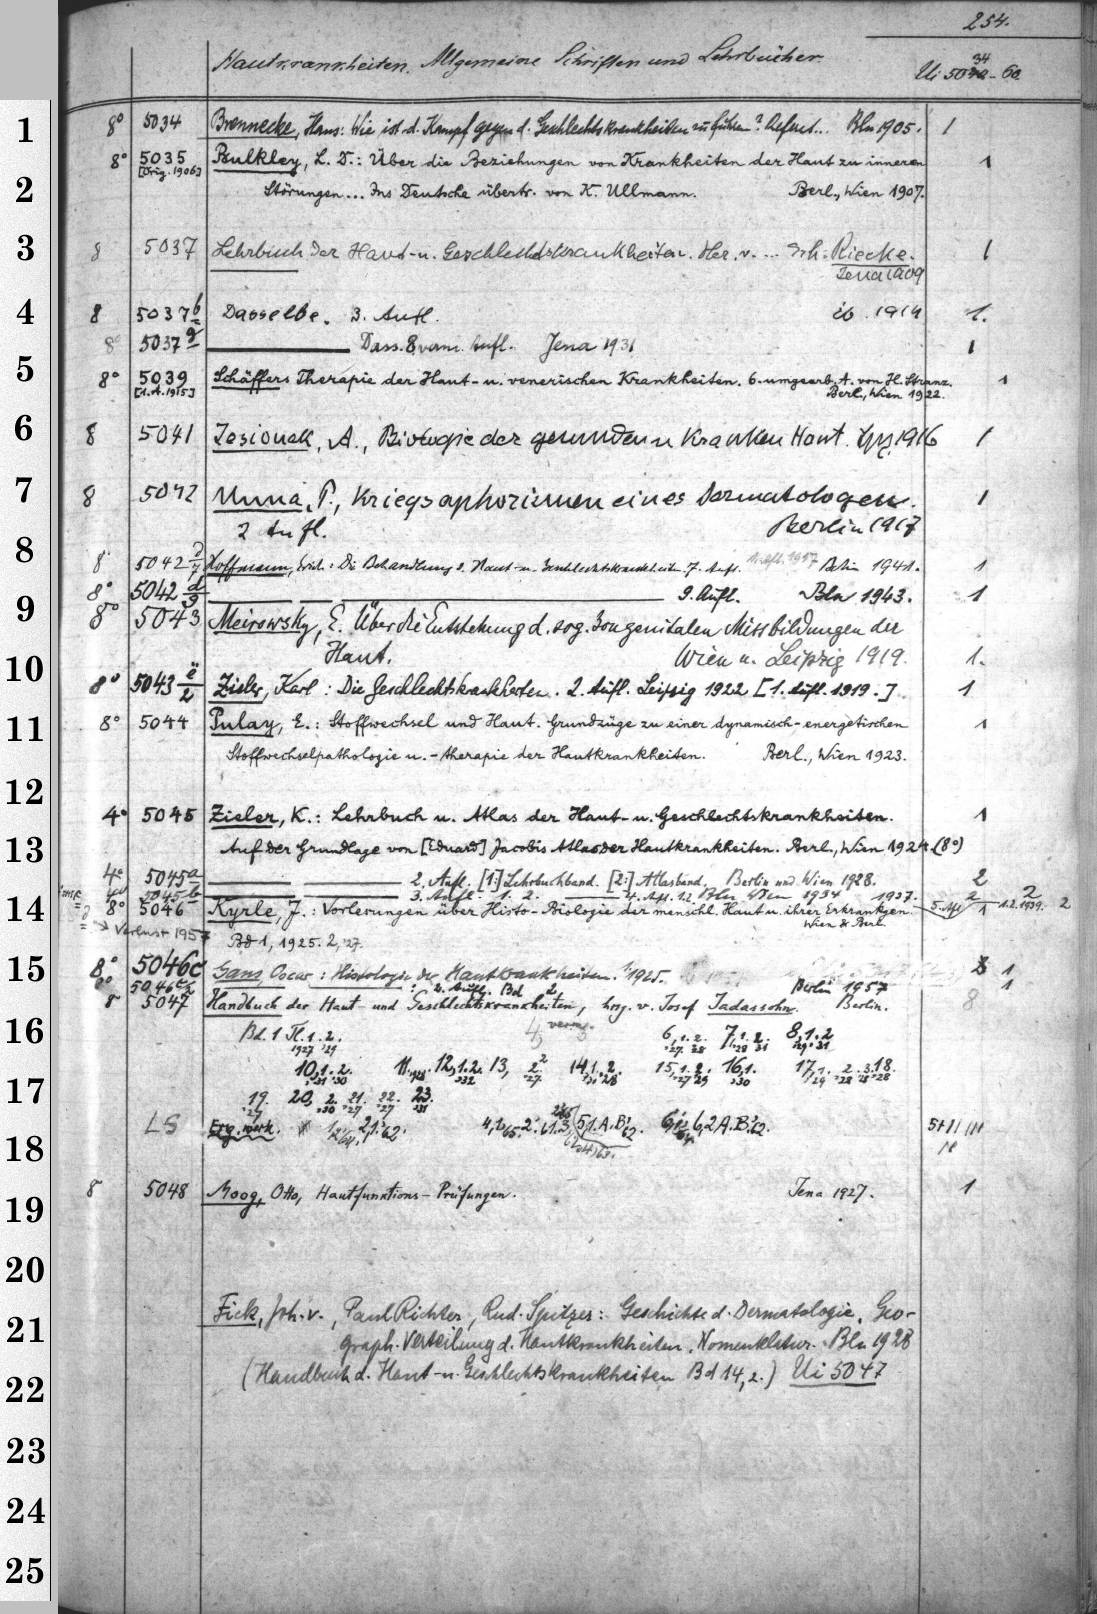 254.
Hautkrankheiten. Allgemeine Schriften und Lehrbücher. Ui 50 34 - 60
1
8° 5034 Brennecke, Hans: Wie ist d. Kampf gegen d. Geschlechtskrankheiten zu führen? Referat... Bln 1905. 1
8° 5035 Bulkley, L. D.: Über die Beziehungen von Krankheiten der Haut zu inneren 1
[Orig. 1906]
2
Störungen... Ins Deutsche übertr. von K. Ullmann. Berl., Wien 1907.
3
8 5037 Lehrbuch der Haut- u. Geschlechtskrankheiten. Her. v. ... Erh. Riecke. 1
Jena 1909
4
8 5037 b Dasselbe. 3. Aufl. ib. 1914 1.
8° 5037 g Dass. 8 verm. Aufl. Jena 1931 1
5
8° 5039 Schäffers Therapie der Haut- u. venerischen Krankheiten. 6. umgearb. A. von H. Stranz. 1
[1.A. 1915] Berl., Wien 1922.
6
8 5041 Jesionek, A., Biologie der gesunden u kranken Haut. Lpz. 1916 1
7
8 5042 Unna, P., Kriegsaphorismen eines Dermatologen. 1
2 Aufl. Berlin 1917
8
8 5042 d/7 Hoffmann, Erich: Die Behandlung d. Haut- u. Geschlechtskrankheit. 7. Aufl. Berlin 1941. 1
8° 5042 d/9 9. Aufl. Bln 1943. 1
9
8° 5043 Meirowsky, E. Über die Entstehung d. sog. kongenitalen Missbildungen der
Haut. Wien u. Leipzig 1919. 1.
10
8° 5043 ë/2 Zieler, Karl: Die Geschlechtskrankheiten. 2. Aufl. Leipzig 1922 [1. Aufl. 1919.] 1
11
8° 5044 Pulay, E.: Stoffwechsel und Haut. Grundzüge zu einer dynamisch-energetischen 1
Stoffwechselpathologie u. -therapie der Hautkrankheiten. Berl., Wien 1923.
12
4° 5045 Zieler, K.: Lehrbuch u. Atlas der Haut- u. Geschlechtskrankheiten. 1
13
Auf der Grundlage von [Eduard] Jacobis Atlas der Hautkrankheiten. Berl., Wien 1924. (8°)
4° 5045a 2. Aufl. [1:] Lehrbuchband. [2:] Atlasband. Berlin und Wien 1928. 2
5045 b 3. Aufl. 1. 2. 4. Aufl. 1.2. Bln Wien 1934 1937. 2
14
8° 5046 Kyrle, J.: Vorlesungen über Histo-Biologie der menschl. Haut u. ihrer Erkrankgen. 5. Aufl 1 1.2. 1939. 2
Wien & Berl.
Verlust 1957
Bd 1, 1925. 2, '27.
15
8° 5046c Gans, Oscar: Histologie der Hautkrankheiten. 1. 1925. 1
5046 c/2 2. Aufl. Bd 2 Berlin 1957 1
8° 5047 Handbuch der Haut- und Geschlechtskrankheiten, hrsg. v. Josef Jadassohn. Berlin. 8
16
Bd. 1 Tl. 1. 2. 6,1. 2. 7,1. 2. 8,1. 2
1927 '29 '27. 28 '28 31 '29 '31
10,1. 2. 11. 12,1. 2. 13, 2. 14,1. 2. 15,1. 2. 16,1. 17,1. 2. 3. 18.
17
19. 20, 2. 21. 22. 23.
'27 '30 '27 '27 '31
LS Erg. werk.
18
19
8 5048 Moog, Otto, Hautfunktions-Prüfungen. Jena 1927. 1
20
Fick, Joh. v., Paul Richter, Rud. Spitzer: Geschichte d. Dermatologie. Geo-
21
graph. Verteilung d. Hautkrankheiten. Nomenklatur. Bln 1928
(Handbuch d. Haut- u. Geschlechtskrankheiten Bd 14, 2.) Ui 5047
22
23
24
25